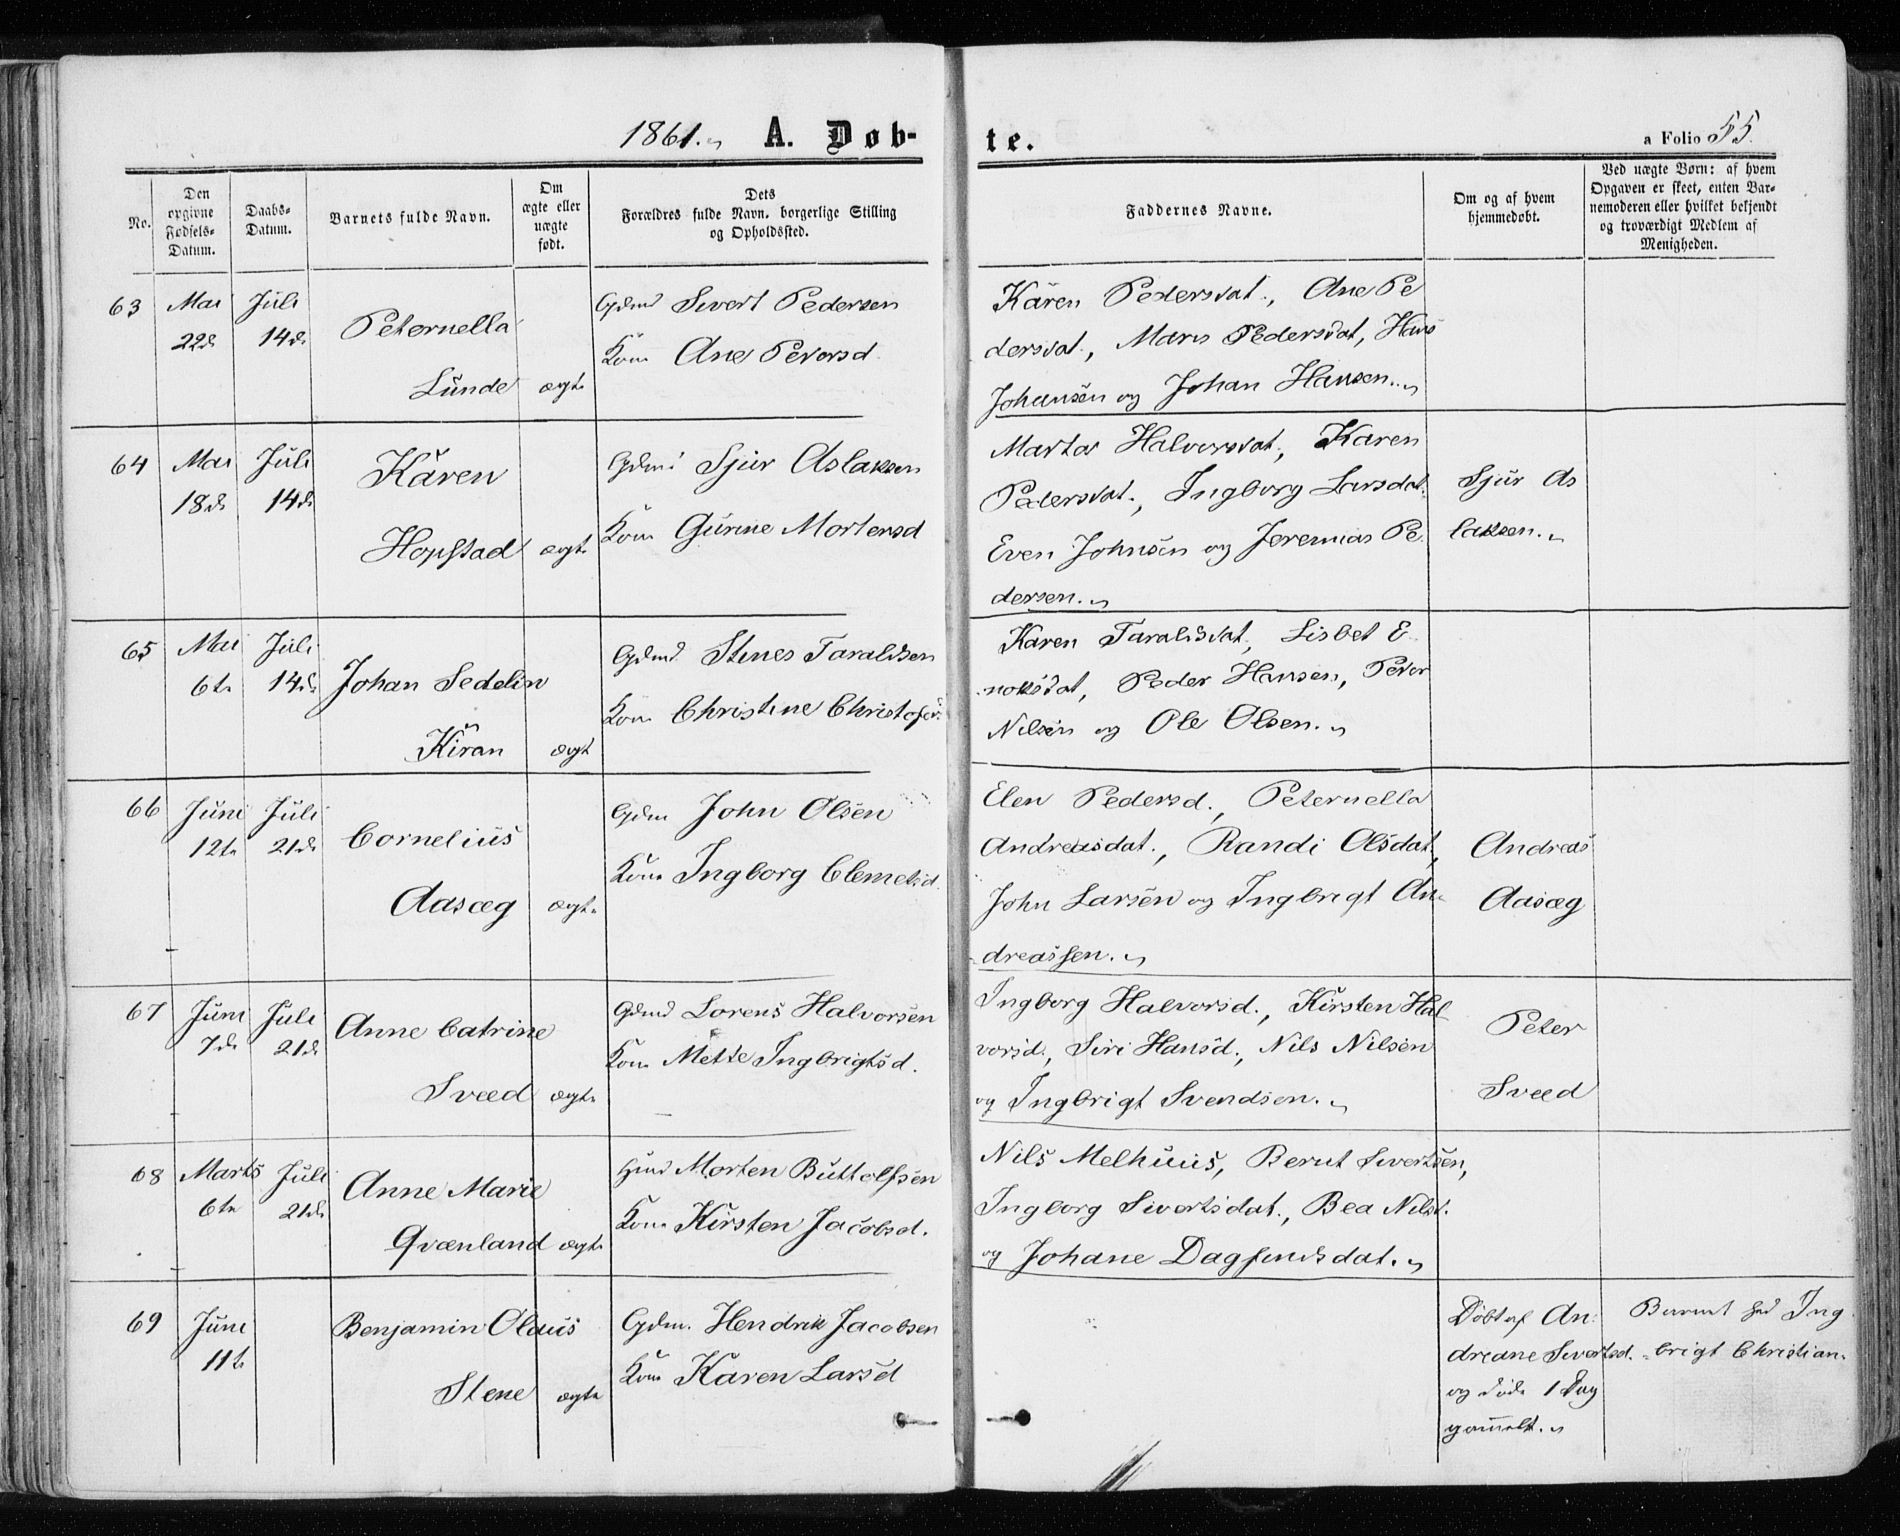 1861. A. Døb-
te.
a Folio 55.
No.
Den opgivne Fødsels-Datum.
Daabs-Datum.
Barnets fulde Navn.
Om ægte eller uægte født.
Dets Forældres fulde Navn, borgerlige Stilling og Opholdssted.
Faddernes Navne.
Om og af hvem hjemmedøbt.
Ved uægte Børn: af hvem Opgaven er skeet, enten Barnemoderen eller hvilket bekjendt og troværdigt Medlem af Menigheden.
63 Mai Juli
22d 14d
Peternella
Lunde ægte
Gdmd Sivert Pedersen
Kone Ane Petersd
Karen Pedersdat., Ane Pe
dersdat., Maris Pedersdat, Hans
Johansen og Johan Hansen.
64 Mai Juli
18d 14d
Karen
Hopstad ægte
Gdmd Sjur Aslaksen
Kone Gurine Mortensd
Marta Halvorsdat., Karen
Pedersdat., Ingborg Larsdat.
Even Johnsen og Jeremias Pe
dersen.
Sjur As
laksen.
65 Mai Juli
6te 14d
Johan Sedelin
Kiran ægt
Gdmd. Stines Taraldsen
Kone Christine Christofers
Karen Taraldsdat, Lisbet E
noksdat, Peder Hansen, Peter
Nilsen og Ole Olsen.
66 Juni Juli
12te 21d
Cornelius
Aasæg ægte
Gdm John Olsen
Kone Ingborg Clemetsd.
Elen Pedersd., Peternella
Andreasdat., Randi Olsdat,
John Larsen og Ingbrigt An-
dreassen.
Andreas
Aasæg
67 Juni Juli
7d 21d
Anne Catrine
Sveed ægte
Gdmd Lorens Halvorsen
Kone Mette Ingbrigtsd.
Ingborg Halvorsd., Kirsten Hal
vorsd., Siri Hansd., Nils Nilsen
og Ingbrigt Svendsen.
Peter
Sveed
68 Marts Juli
6te 21d
Anne Marie
Qvænland ægte
Hmd Morten Buttolfsen
Kone Kirsten Jacobsd.
Nils Melhuus, Berut Sivertsen,
Ingborg Sivertsdat., Bea Nilsd.
og Johane Dagfindsdat.
69 Juni
11te
Benjamin Olaus
Stene ægte
Gdm. Hendrik Jacobsen
Kone Karen Larsd
Døbt af An
dreane Sivertsd.
og døde 1 Dag
gammelt.
Barnet hed Ing
brigt Christian.